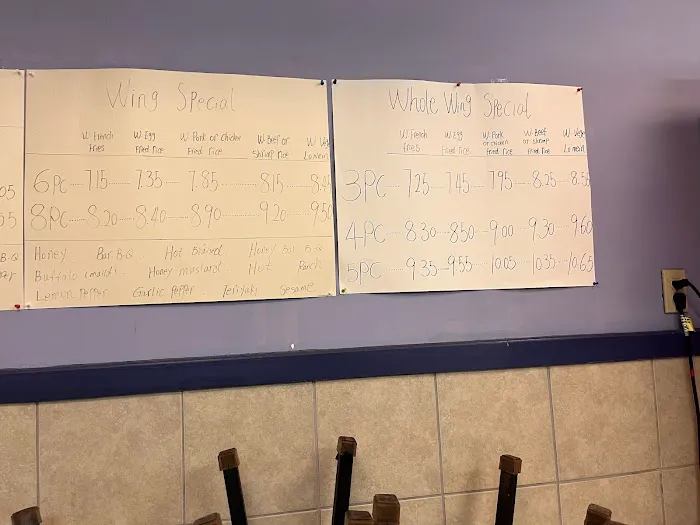 05
55
B-Q
Wing Special
W. French Fries W. Egg Fried rice W. Pork or Chicken Fried rice W. Beef or Shrimp rice W. Vege Lo mein
6PC 7.15 7.35 7.85 8.15
8PC 8.20 8.40 8.90 9.20 9.50
Honey Bar B.Q Hot Honey Bar B.Q
Buffalo Honey mustard Hot Ranch
Lemon Pepper Garlic Pepper Teriyaki Sesame
Whole Wing Special
W. French Fries W. Egg Fried rice W. Pork or Chicken Fried rice W. Beef or Shrimp Fried rice W. Vege Lo mein
3PC 7.25 7.45 7.95 8.25 8.55
4PC 8.30 8.50 9.00 9.30 9.60
5PC 9.35 9.55 10.05 10.35 10.65